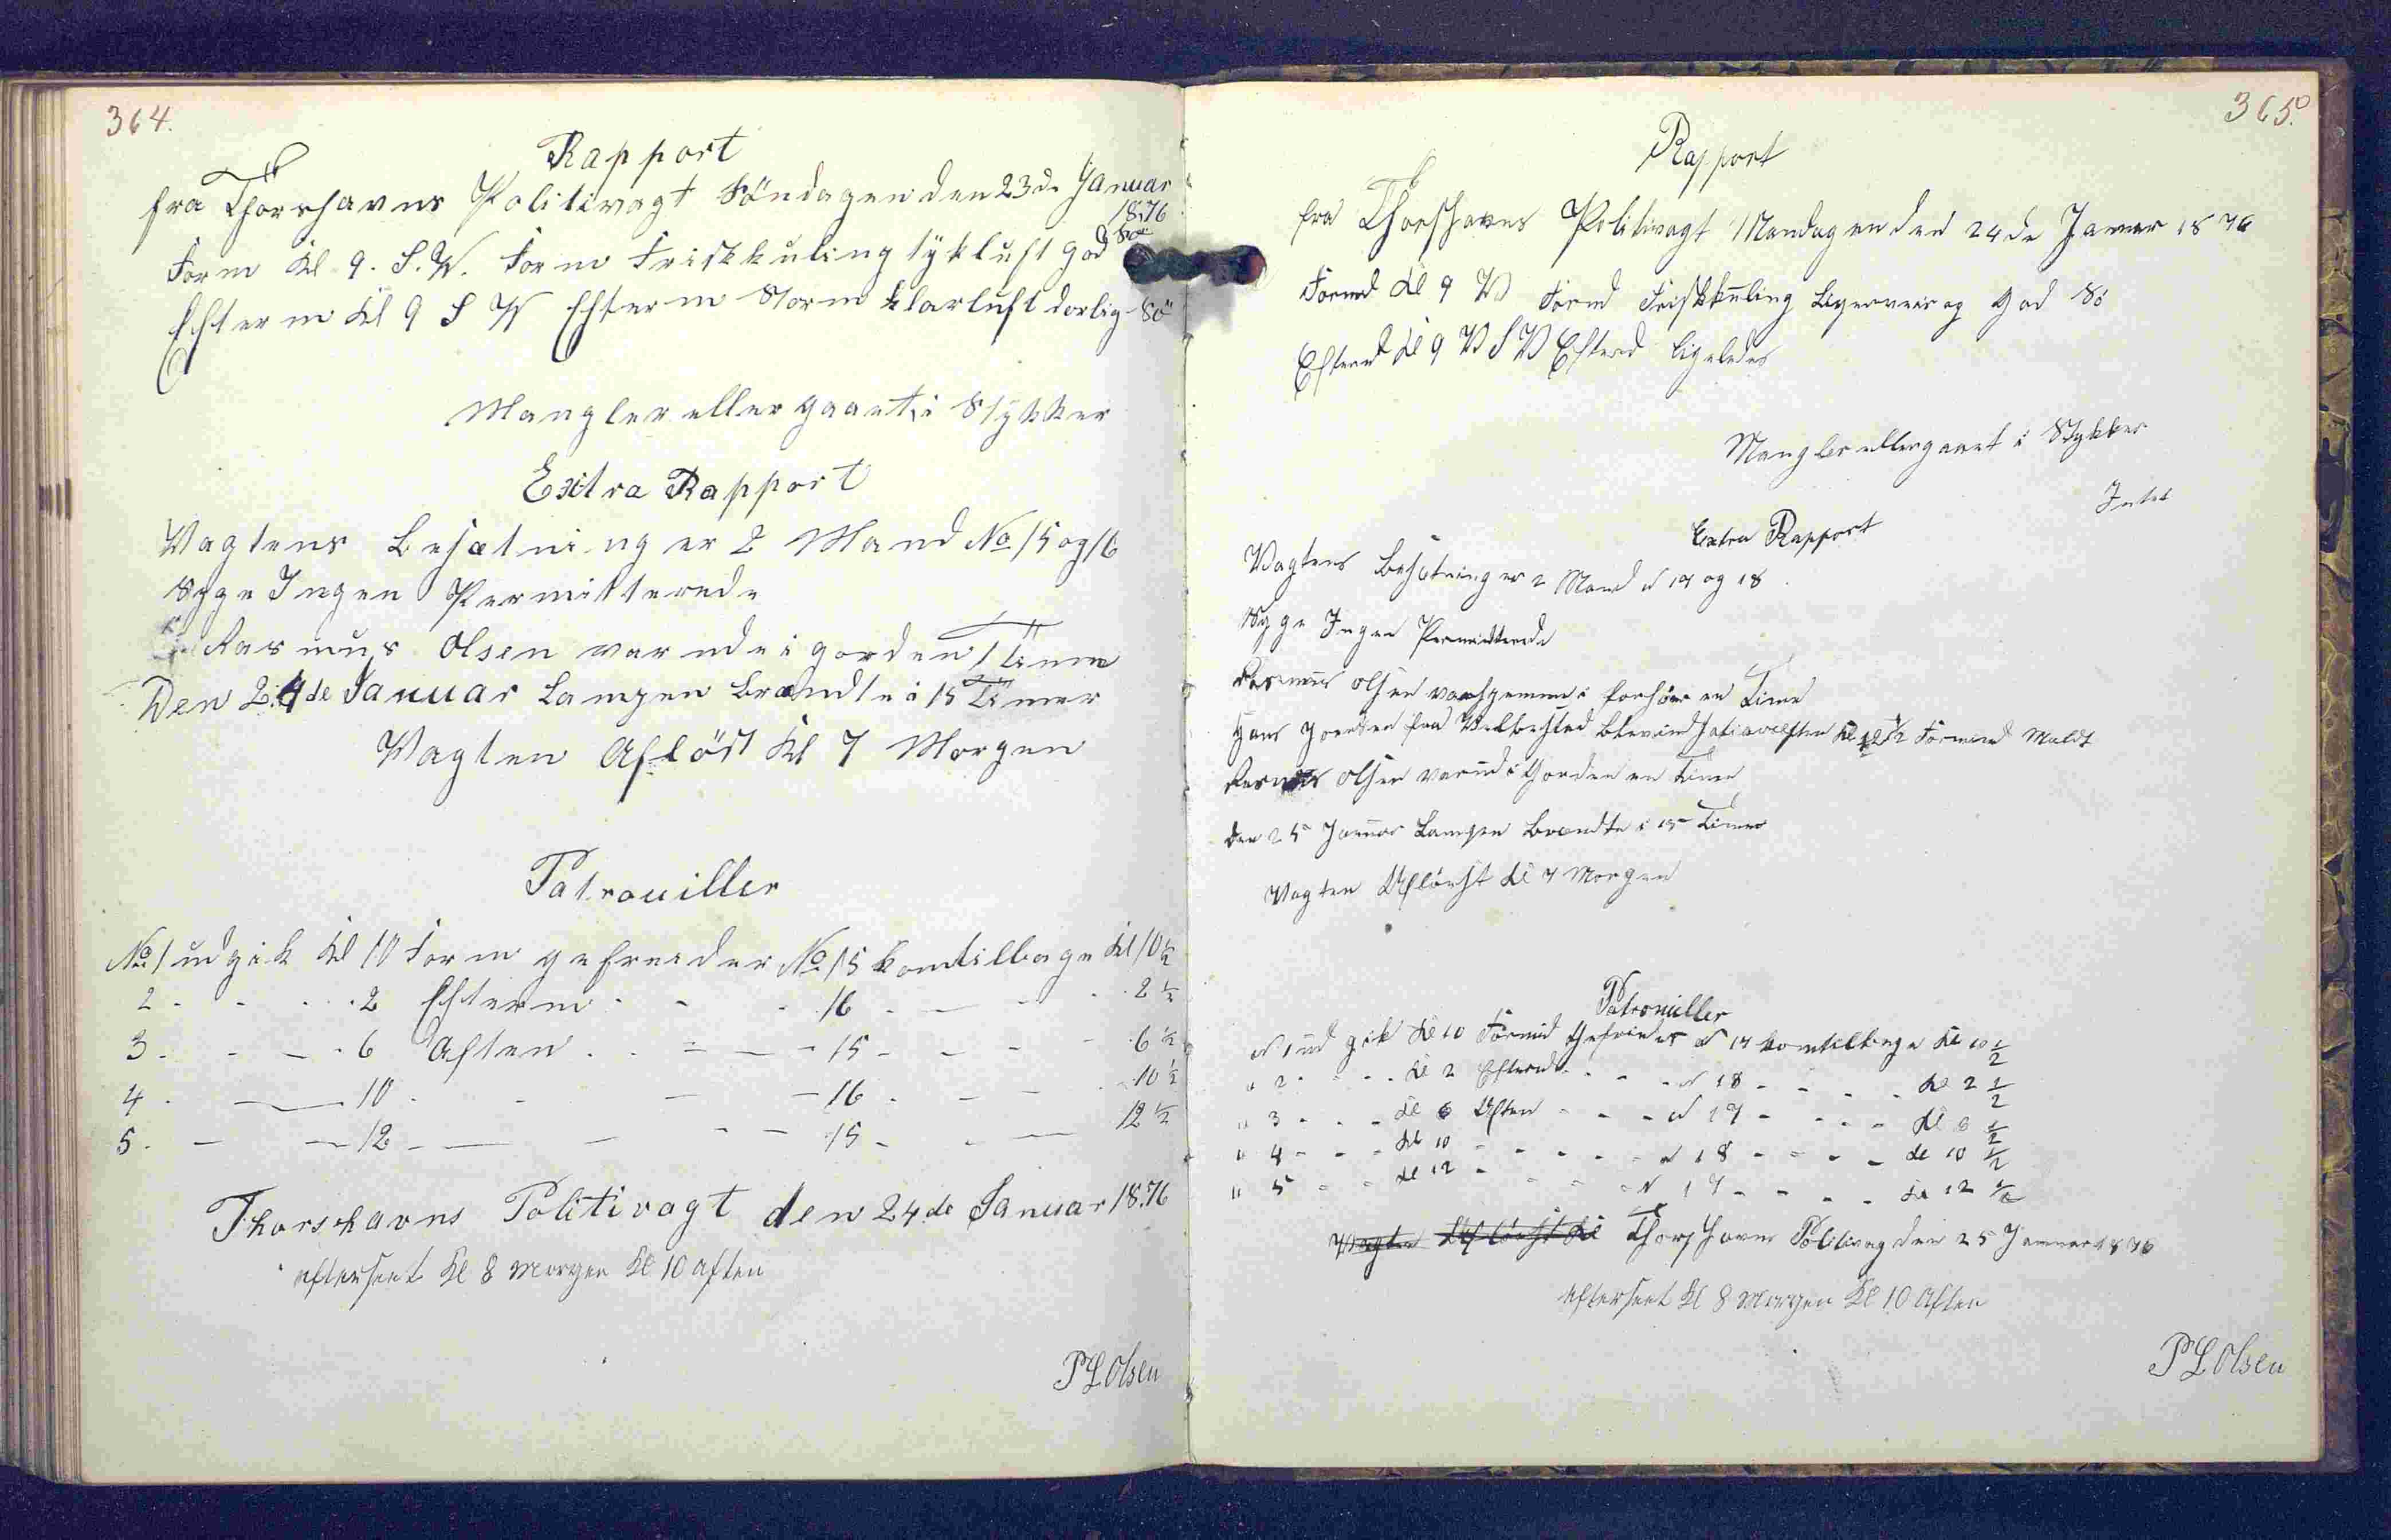 364.
Rapport
fra Thorshavns Politivagt Söndagen den 23de Januar
1876
Form Kl 9. S.V. Form Friskkuling tykluft god Söe
Efterm Kl 9 S V Efterm Storm klarluft dorlig Sö
Mangler eller gaaet i Stykker
Extra Rapport
Vagtens Besætning er 2 Mand No 15 og 16
Syge Ingen Permitterede
Rasmus Olsen var ude i gorden 1 Time
Den 24de Januar Lampen brændte i 15 Timer
Vagten Aflöst Kl 7 Morgen
Patrouiller
No 1 udgik Kl 10 Form gefreider No 15 kom tilbage Kl 10 ½
2 - - - 2 Efterm - - - 16 - - - 2 ½
3 - - - 6 Aften - - - 15 - - - 6 ½
4 - - - 10 - - - 16 - - - 10 ½
5 - - - 12 - - - 15 - - - 12 ½
Thorshavns Politivagt den 24de Januar 1876
efterseet Kl 8 Morgen Kl 10 Aften
P L Olsen
365.
Rapport
fra Thorshavns Politivagt Mandagen den 24de Januar 1876
Formd Kl 9 V Formd Friskkuling og god Sö
Eftermd Kl 9 V S V Eftermd ligeledes
Mangler eller gaaet i Stykker
Intet
Extra Rapport
Vagtens Besætning er 2 Mand N 17 og 18
Syge Ingen Permitterede
Rasmus Olsen i forhör en Time
Hans Joensen fra Velbested blev ind Kl 12 ½ Formd
Rasmus Olsen var ud i Gorden en Time
den 25 Januar Lampen brændte i 15 Timer
Vagten Aflöest Kl 7 Morgen
Patrouiller
N 1 ud gik Kl 10 Formd Gefreider N 17 kom tilbage Kl 10 ½
" 2 - - - Kl 2 Eftermd - - - N 18 - - - Kl 2 ½
" 3 - - - Kl 6 Aften - - - N 17 - - - Kl 6 ½
" 4 - - - Kl 10 - - - N 18 - - - Kl 10 ½
" 5 - - - Kl 12 - - - N 17 - - - Kl 12 ½
Vagten Aflöest Kl Thorshavns Politivag den 25 Januar 1876
efterseet Kl 8 Morgen Kl 10 Aften
P L Olsen